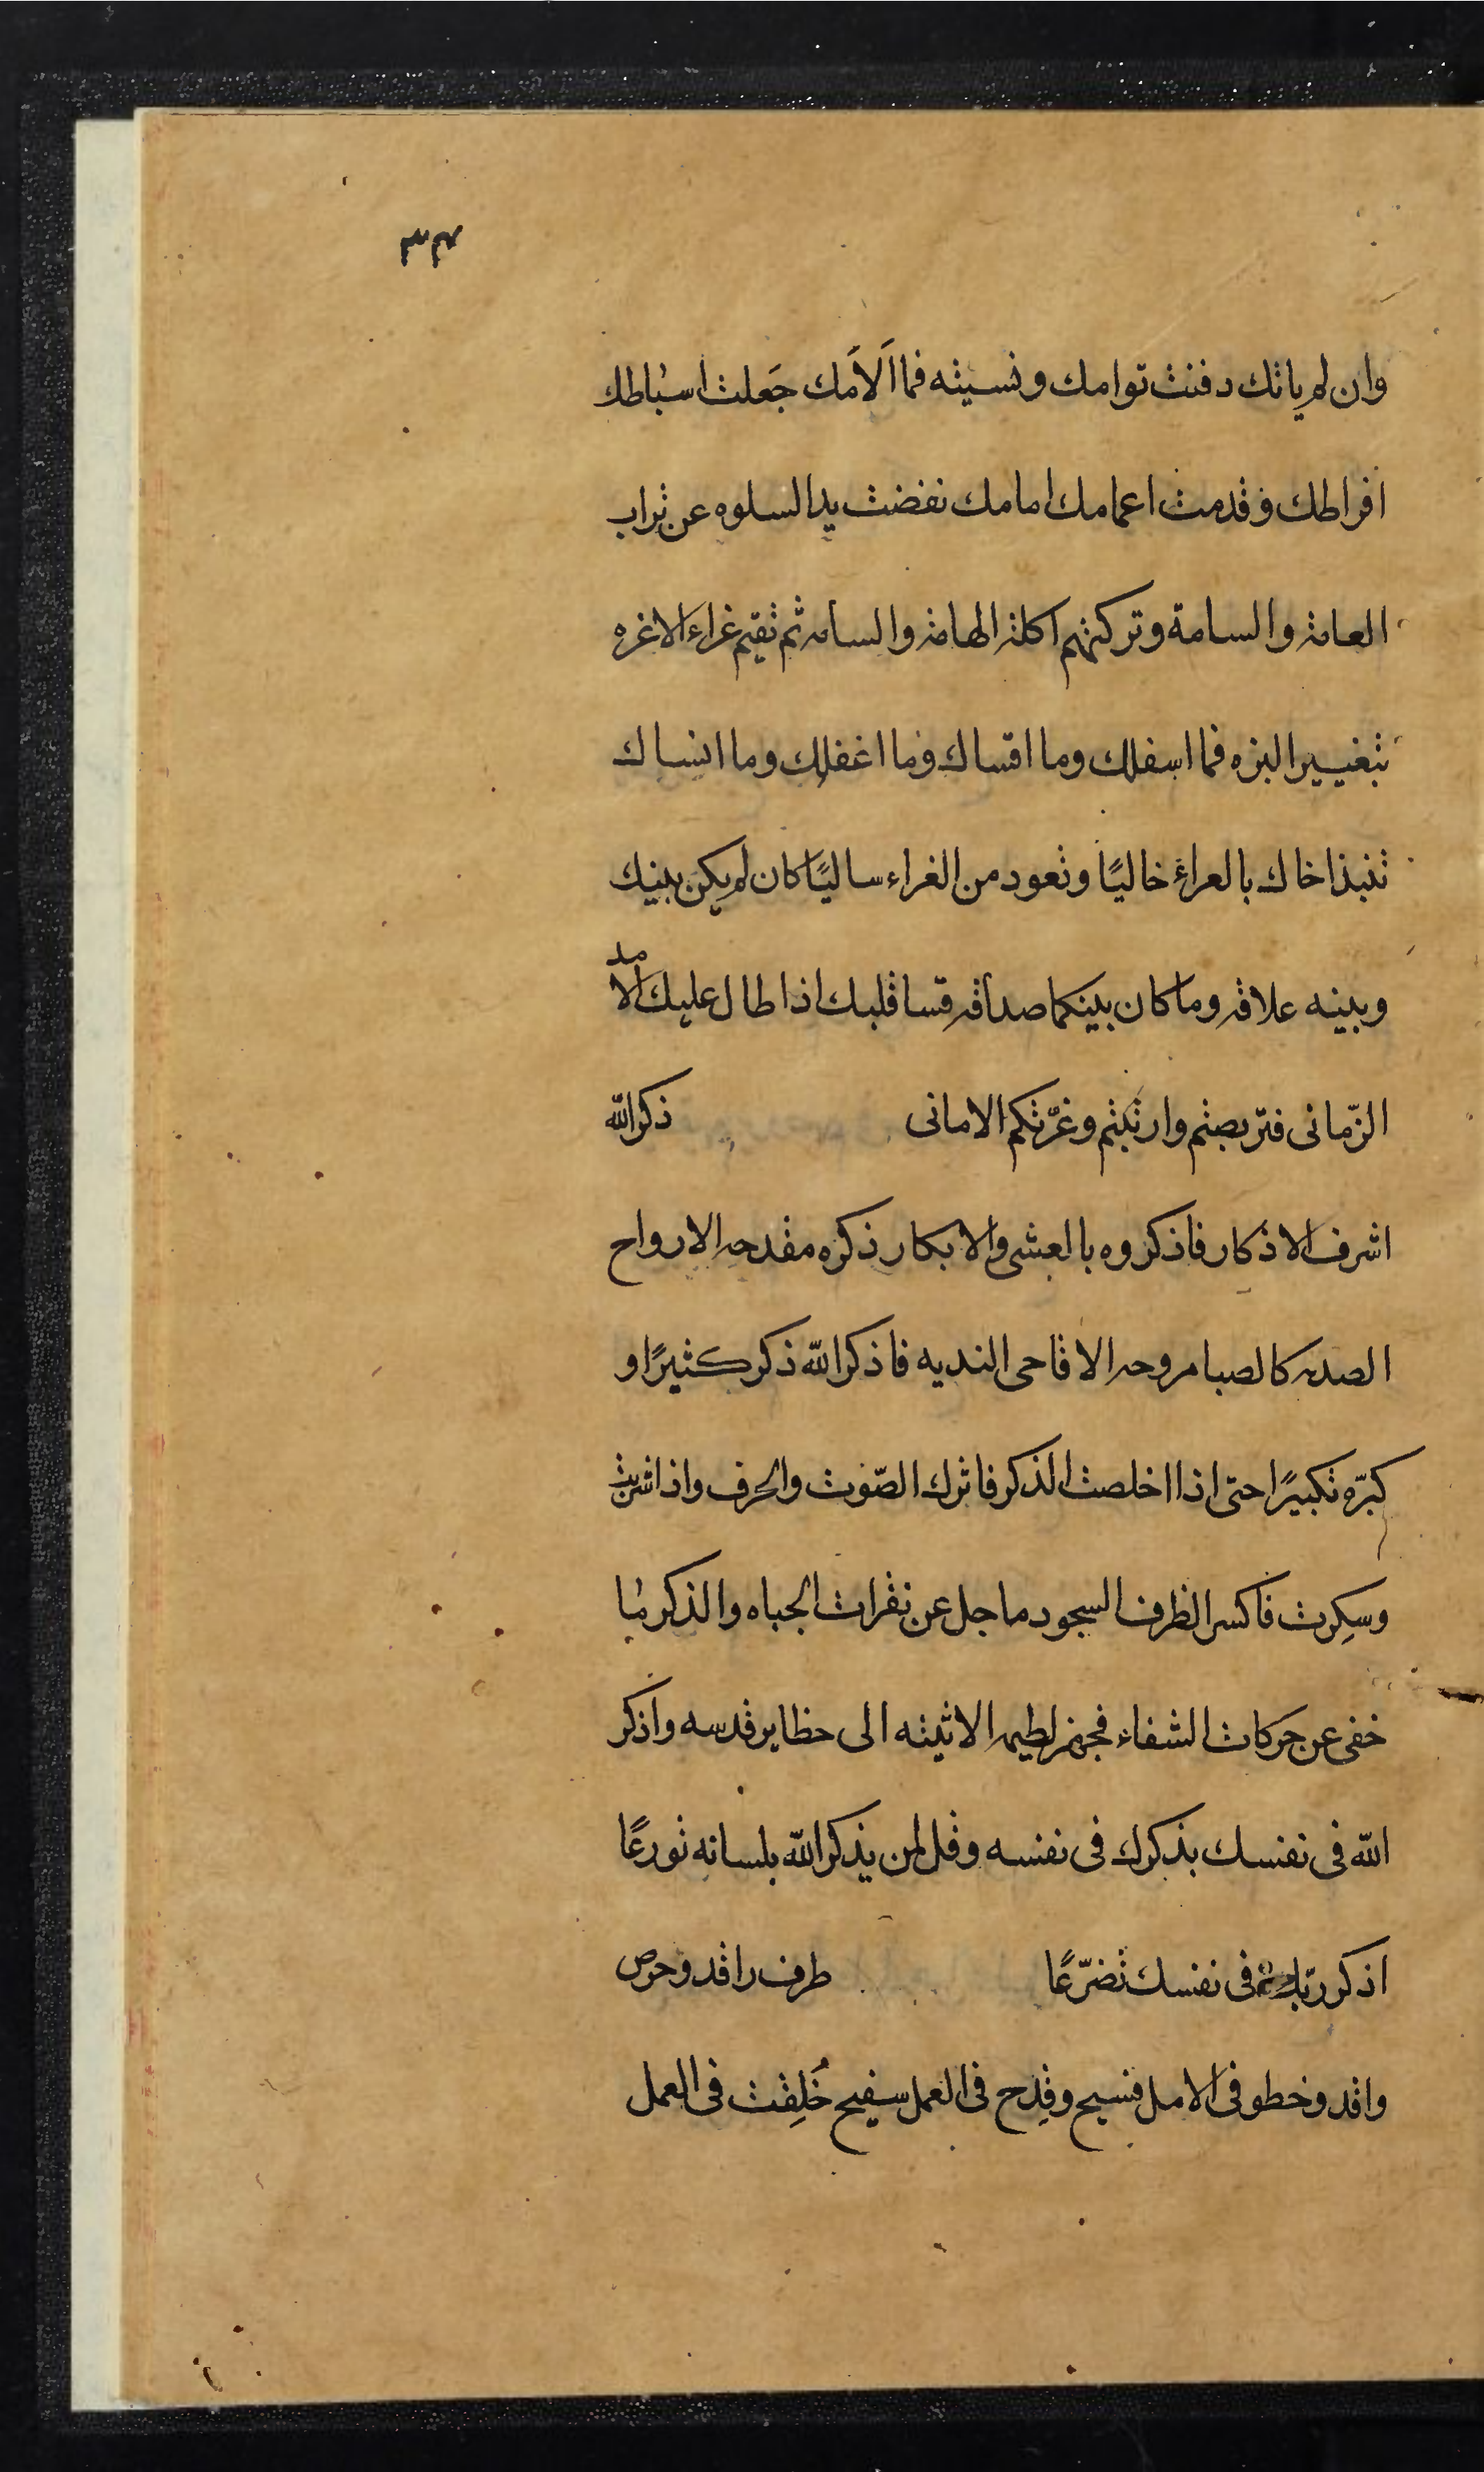 ٣٣
وان لم ياتك دفنت توامك ونسيته فما اَلاَمك جَعلت اسباطك
افراطك وقدمت اعمامك امامك نفضت يد السلوه عن تراب
العامة والسامة وتركتهم اكلة الهامة والسامه ثم تقيم غراء الاغره
بتغيير البزه فما اسفلك وما اقساك وما اغفلك وما انساك
تنبذ اخاك بالعراء خاليًا وتعود من الغراء ساليًا كان لم يكن بينك
وبينه علاقه وما كان بينكما صداقه قسا قلبك اذا طال عليك الامد
الزّمانى فتربصتم وارتبتم وغرّتكم الامانى ذكر الله
اشرف الاذكار فاذكروه بالعشى والابكار ذكره مقدحه الارواح
الصديه كالصبا مروحه الاقاحى النديه فاذكر الله ذكر كثيرًا و
كبّره تكبيرًا حتى اذا اخلصت الذكر فاترك الصّوت والحرف واذا شربت
وسكِرت فاكسر الظرف السجود ما جل عن نقرات الجباه والذكر ما
خفى عن حركات الشفاه فجهز لطيمه الاثينه الى حظاير قدسه واذكر
الله فى نفسك بذكرك فى نفسه وقل لمن يذكر الله بلسانه تورعًا
اذكر ربّك فى نفسك تضرّعًا طرف راقد وحرص
واقد وخطو فى الامل فسيح وقِدح فى العمل سفيح خُلِقت فى العمل